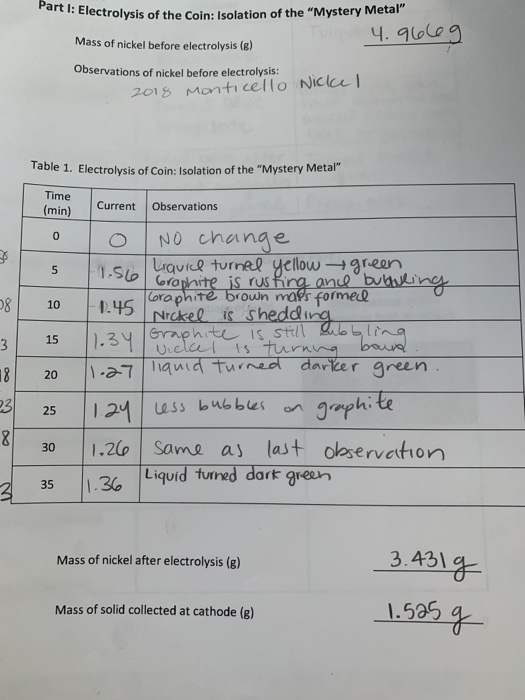 Part I: Electrolysis of the Coin: Isolation of the "Mystery Metal"
Mass of nickel before electrolysis (g) 4.966g
Observations of nickel before electrolysis:
2018 Monticello Nickel
Table 1. Electrolysis of Coin: Isolation of the "Mystery Metal"
Time (min) Current Observations
0 0 NO change
5 1.56 Liquid turned yellow → green
Graphite is rusting and bubbling
10 1.45 Graphite brown formed
Nickel is shedding
15 1.34 Graphite is still bubbling
Nickel is turning
20 1.27 liquid turned darker green.
25 1.24 Less bubbles on graphite
30 1.26 Same as last observation
35 1.36 Liquid turned dark green
Mass of nickel after electrolysis (g) 3.431g
Mass of solid collected at cathode (g) 1.525 g